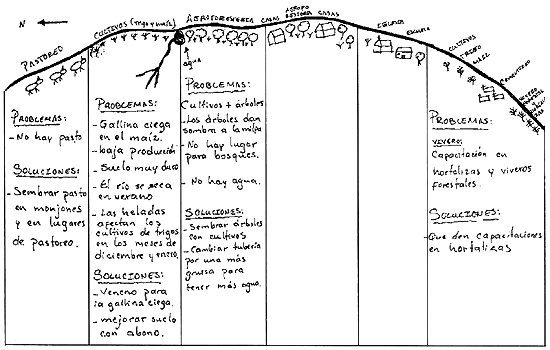 N
PASTOREO
CULTIVOS (trigo y maíz)
AGROFORESTERIA
CASAS
AGROFO
RESTERIA
CASAS
ESCUELA
CULTIVOS
TRIGO
MAIZ
CEMENTERIO
VIVERO
agua
PROBLEMAS:
- No hay pasto
SOLUCIONES:
- Sembrar pasto
en monjones
y en lugares
de pastoreo.
PROBLEMAS:
- Gallina ciega
en el maíz.
- baja producción
- Suelo muy duro
- El río se seca
en verano
- Las heladas
afectan los
cultivos de trigos
en los meses de
diciembre y enero.
SOLUCIONES:
- Veneno para
la gallina ciega.
- mejorar suelo
con abono.
PROBLEMAS:
Cultivos + árboles
- Los árboles dan
sombra a la milpa
- No hay lugar
para bosques.
- No hay agua.
SOLUCIONES:
- Sembrar árboles
con cultivos
- Cambiar tubería
por una más
gruesa para
tener más agua.
PROBLEMAS:
VIVERO:
Capacitación en
hortalizas y viveros
forestales.
SOLUCIONES:
- Que den capacitaciones
en hortalizas